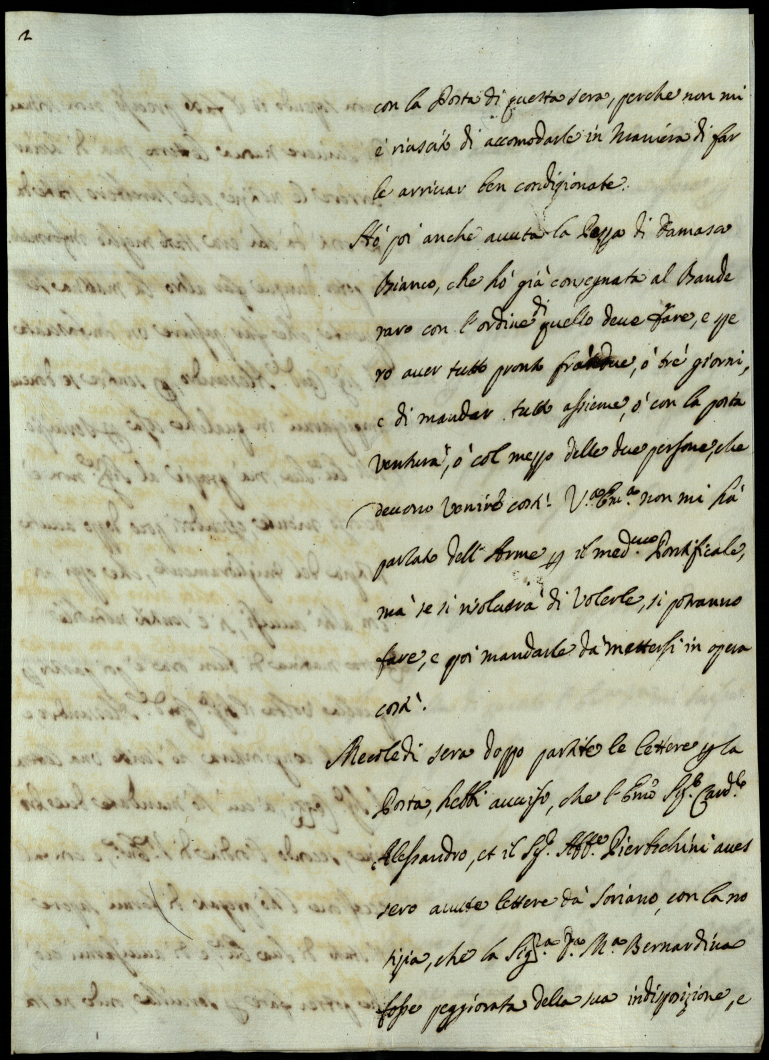 2
con la Posta di questa sera, perche non mi
è riuscito di accomodarle in Maniera di far
le arrivar ben condizionate.
Hò poi anche avuta la Pezza di Damasco
Bianco, che hò già consegnata al Bande
raro con l'ordine di quello deve fare, e spe
ro aver tutto pronto frà due, ò trè giorni,
e di mandar tutto assieme, ò con la posta
ventura, ò col mezzo delle due persone, che
devono venire costì. V.ª Em.ª non mi hà
parlato dell'Arme il med.mo Pontificale,
mà se si risolverà di volerle, si potranno
fare, e poi mandarle dà mettersi in opera
costì.
Mercoledi sera doppo partite le lettere la
Posta, hebbi avviso, che l'Emo Sig.r Card.le
Alessandro, et il Sig.r Abb.e Pierbechini aves
sero avute lettere dà Soriano, con la no
tizia, che la Sig.ra D.a M.a Bernardina
fosse peggiorata della sua indisposizione, e